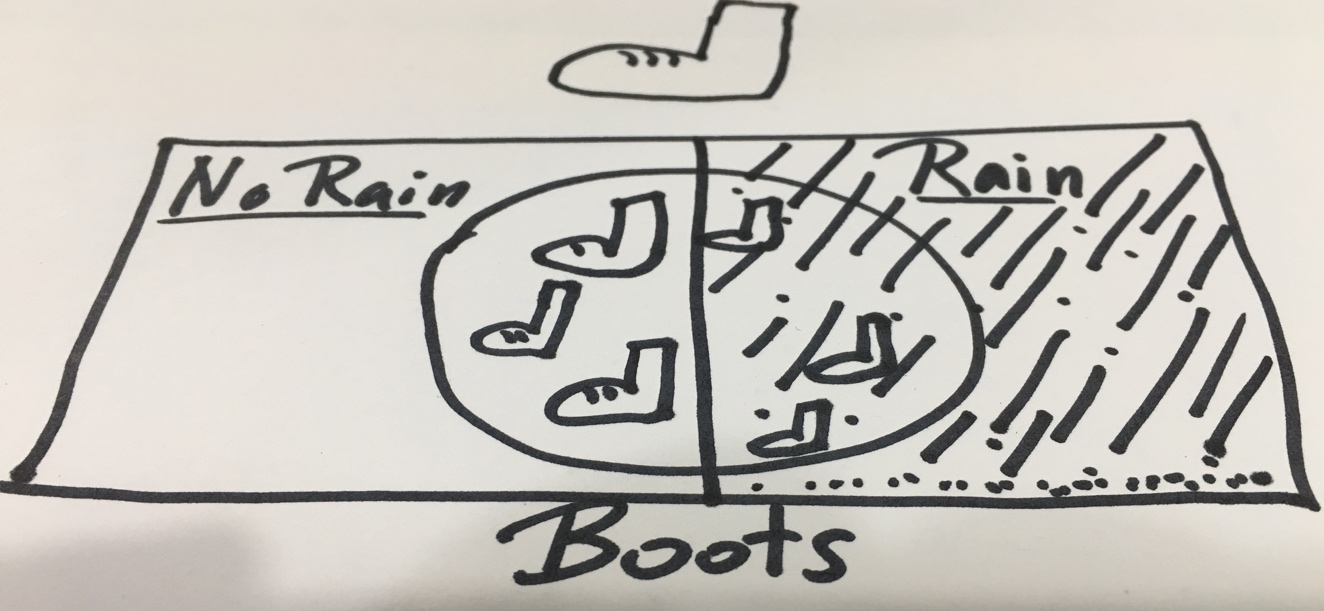 No Rain
Rain
Boots